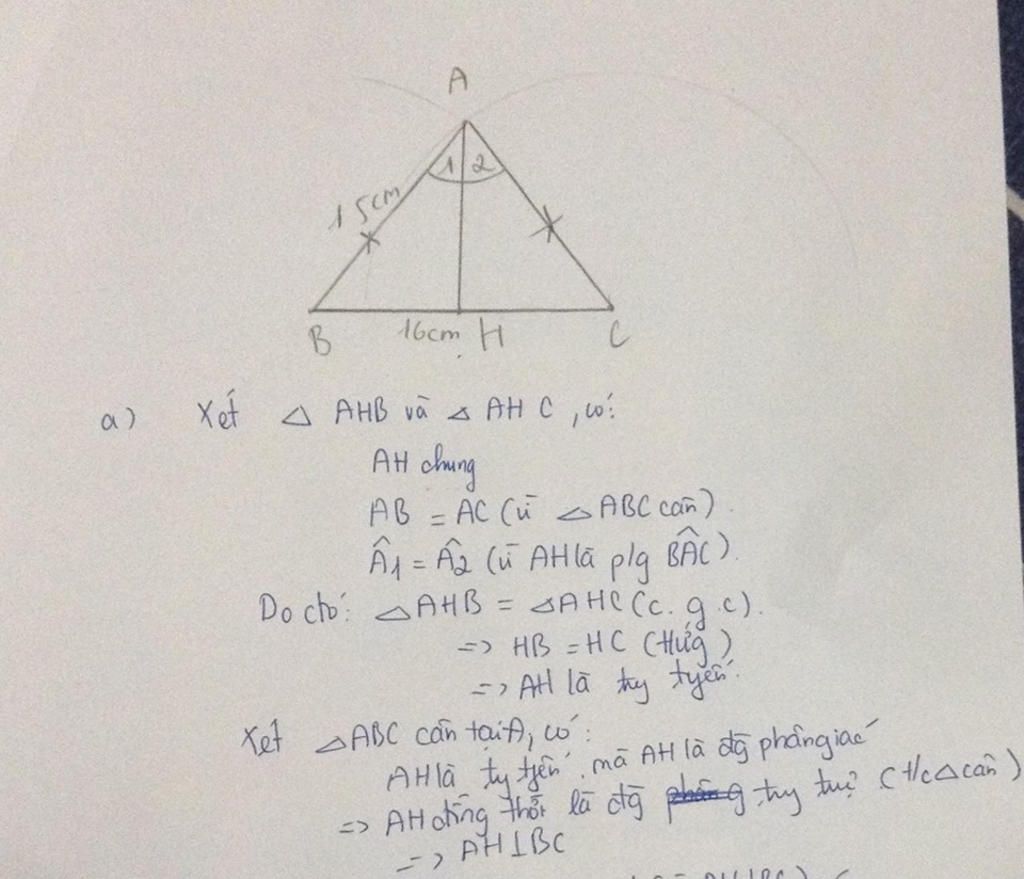 A
1 2
15cm
B 16cm H C
a) Xét △ AHB và △ AHC, có:
AH chung
AB = AC (vì △ ABC cân).
Â1 = Â2 (vì AH là p/g BÂC).
Do đó: △AHB = △AHC (c.g.c).
=> HB = HC (t/ứg)
=> AH là ty tyến.
Xét △ABC cân tại A, có:
AH là ty tyến, mà AH là đg phân giác
=> AH đồng thời là đg try trực (t/c △ cân)
=> AH⊥BC